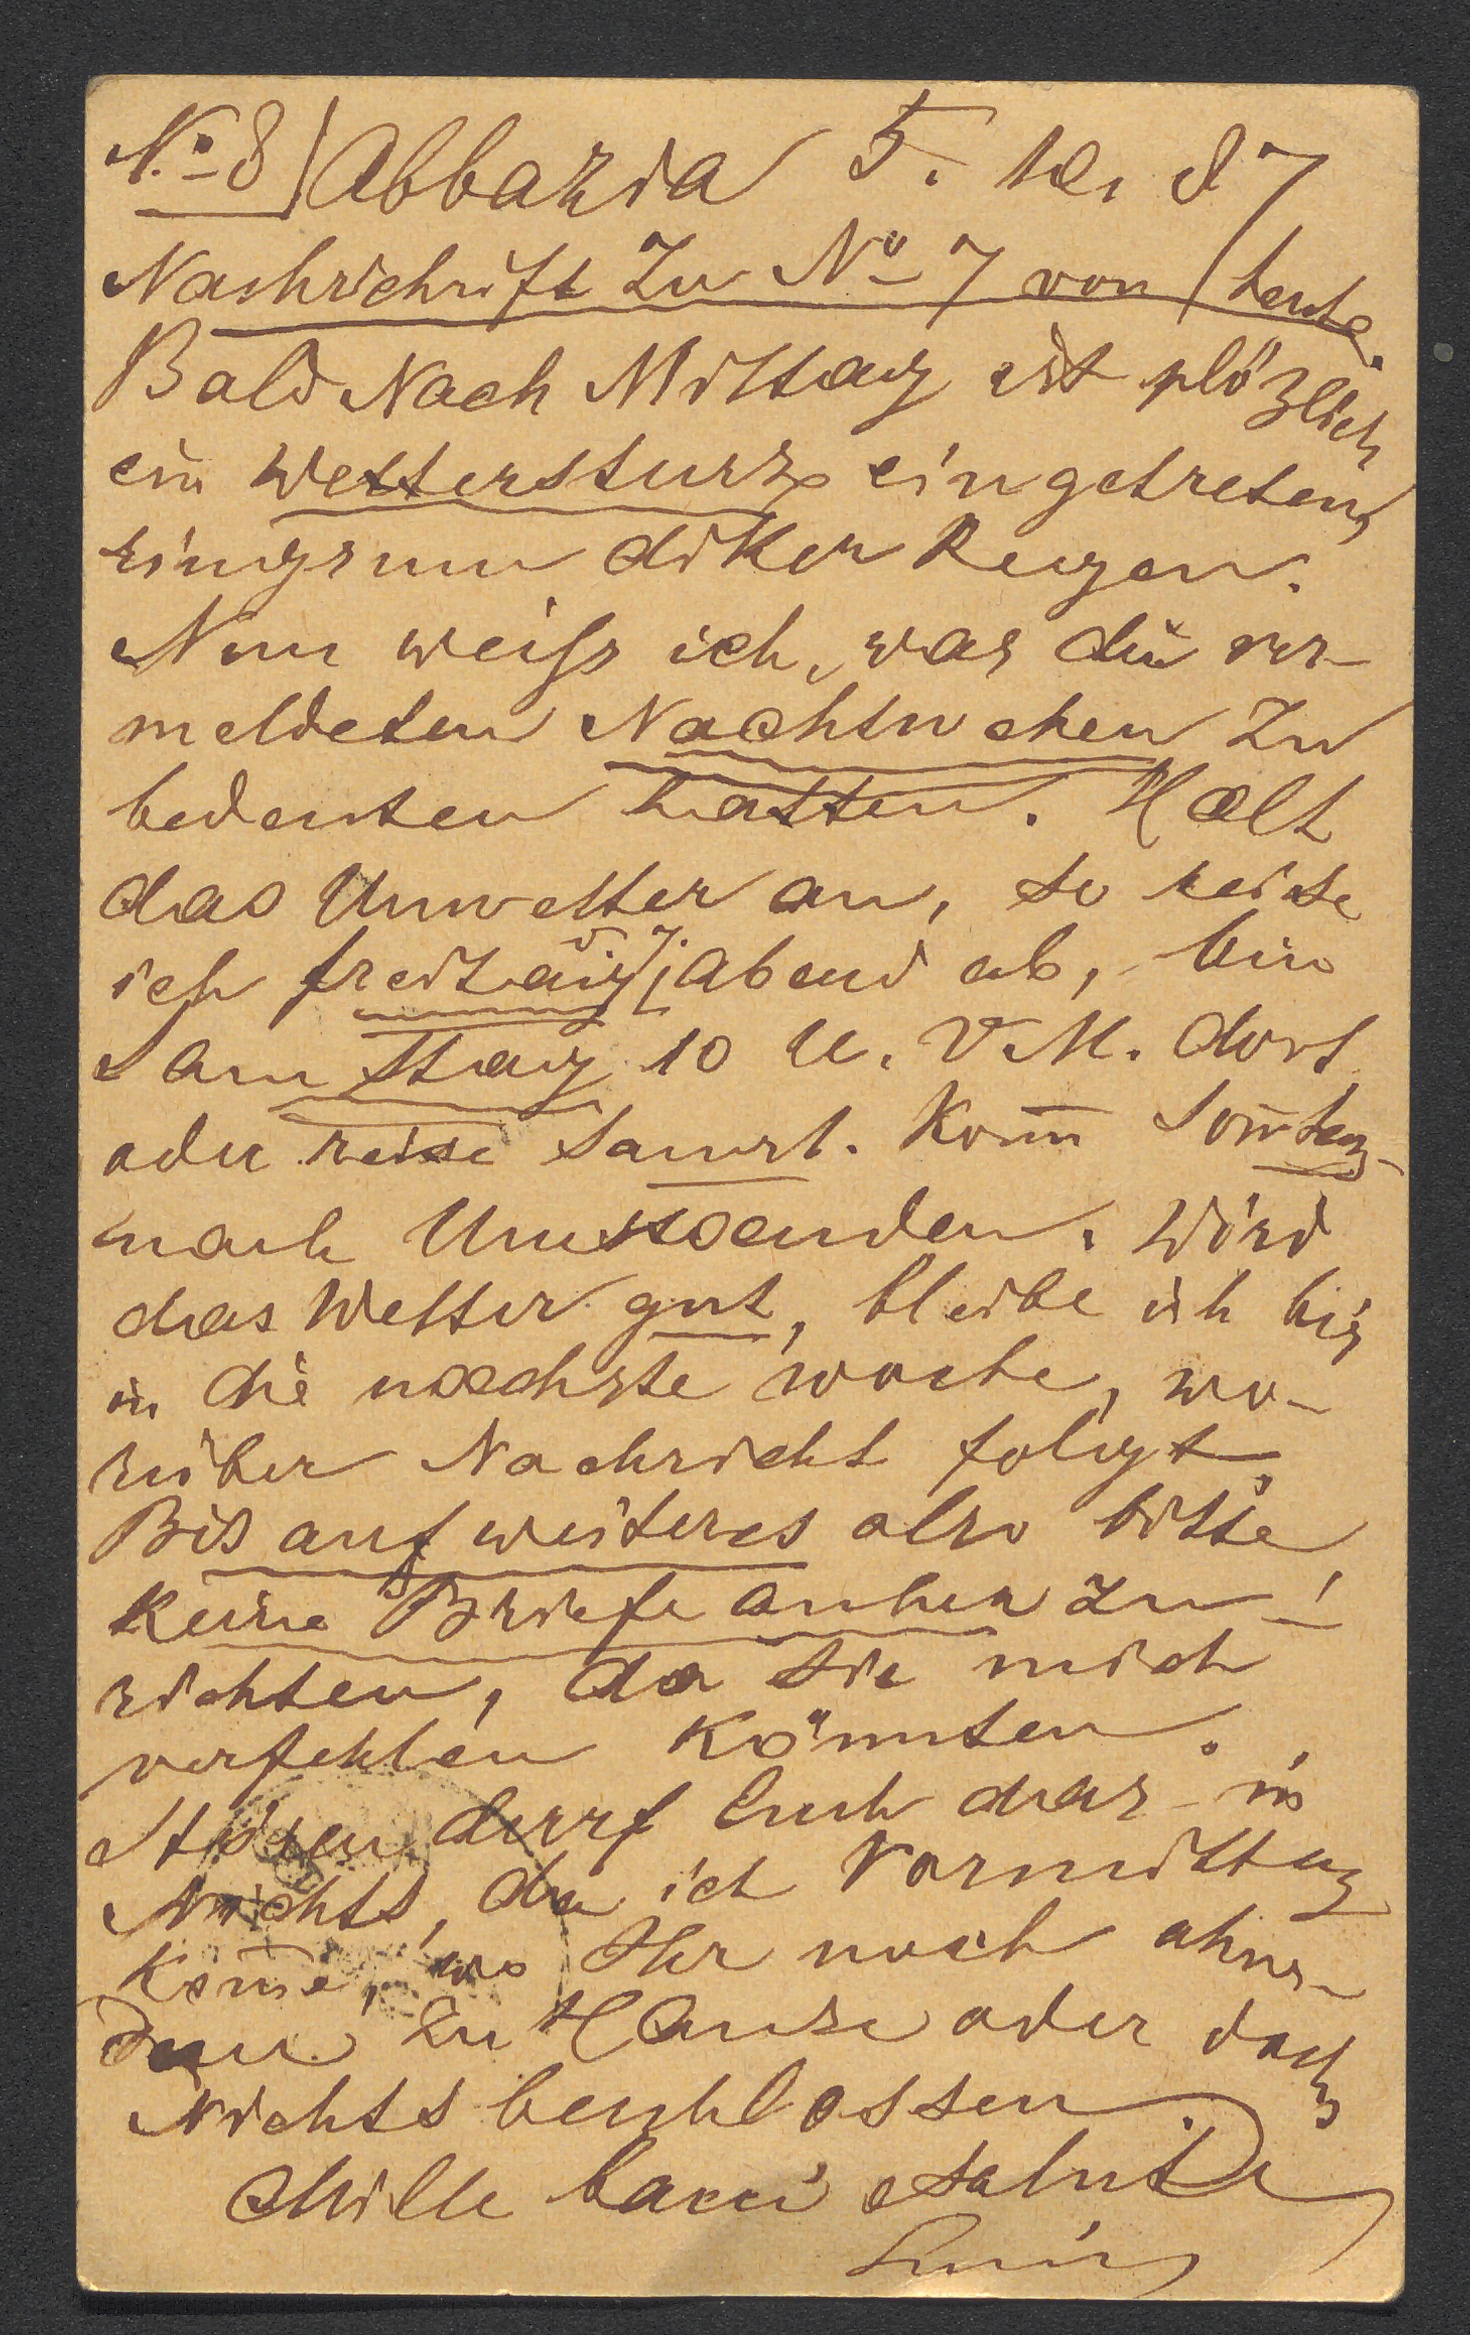 No 8 Abbazia 5. 10. 87
Nachschrift zu No 7 von heute.
Bald Nach Mittag ist plözlich
ein Wettersturz eingetreten,
ringsum diker Regen.
Nun weiss ich, was die ver-
meldeten Nachtwehen zu
bedeuten hatten. Hælt
das Unwetter an, so reise
ich freitag 7. Abend ab, bin
Samstag 10 U. V. M. dort
oder reise Samst. Kom̄ Son̄tag
nach Umstænden. Wird
das Wetter gut, bleibe ich bis
in die næchste woche, wo-
rüber Nachricht folgt.
Bis auf weiteres also bitte
keine Briefe anher zu
richten, da sie mich
verfehlen könnten.
Stören darf Euch das in
Nichts, da ich Vormittag
kom̄e, wo Ihr noch ohne-
dem zu Hause oder doch
Nichts beschlossen.
Mille bacci e salute
Louis